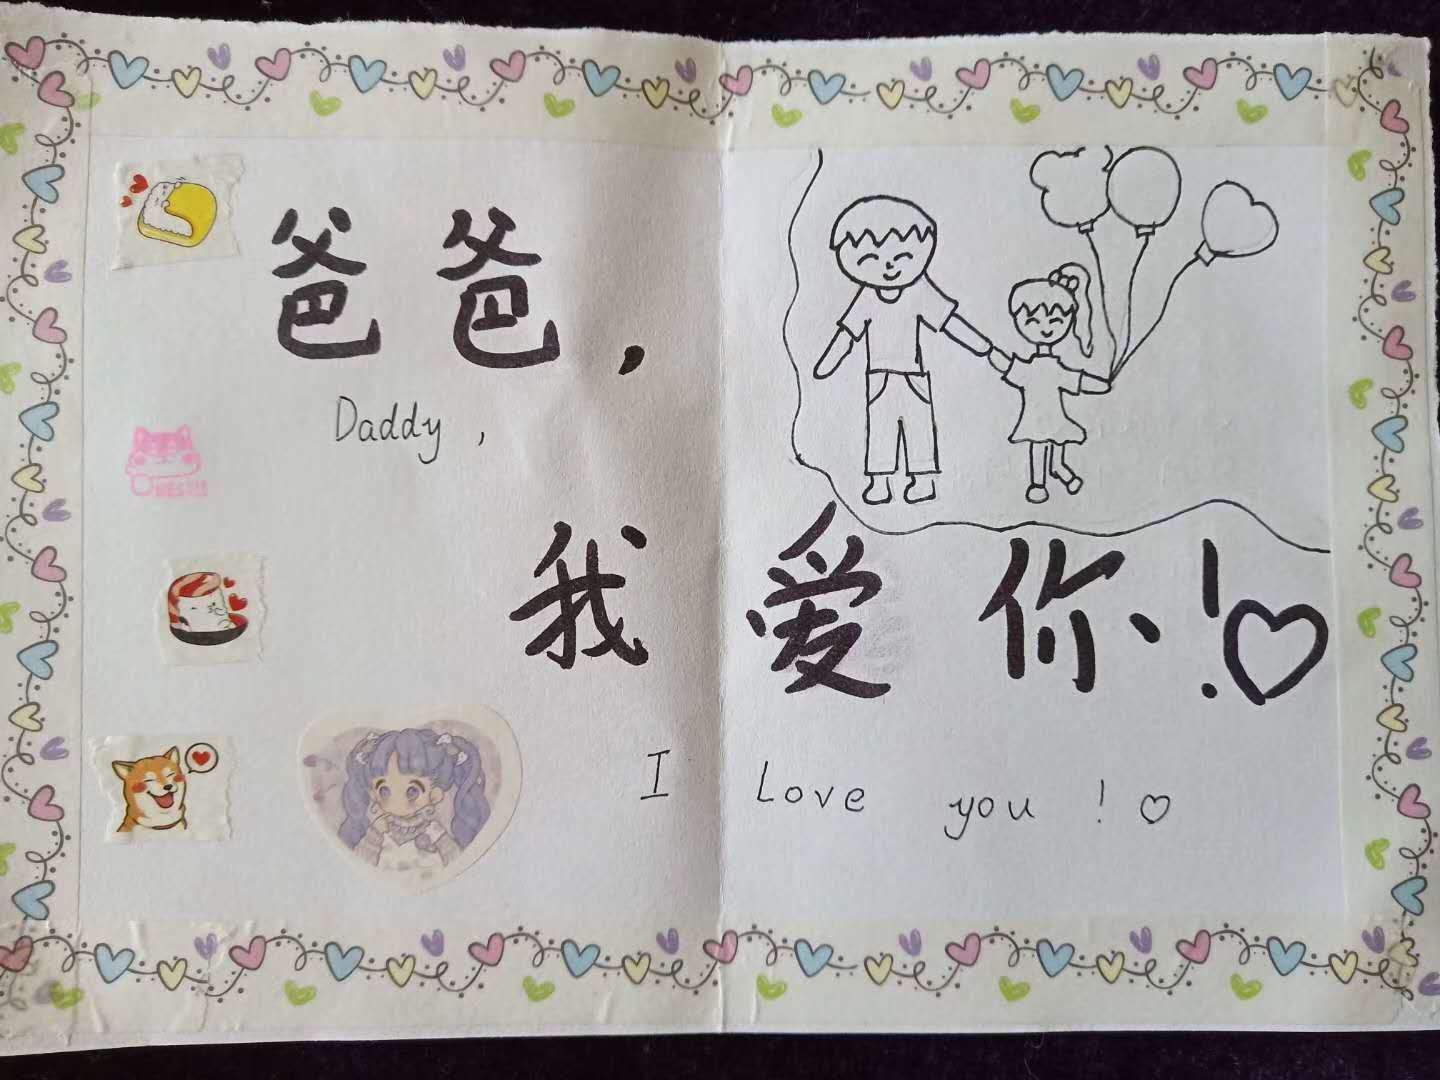 爸爸，
Daddy,
我爱你!♡
I Love you!♡